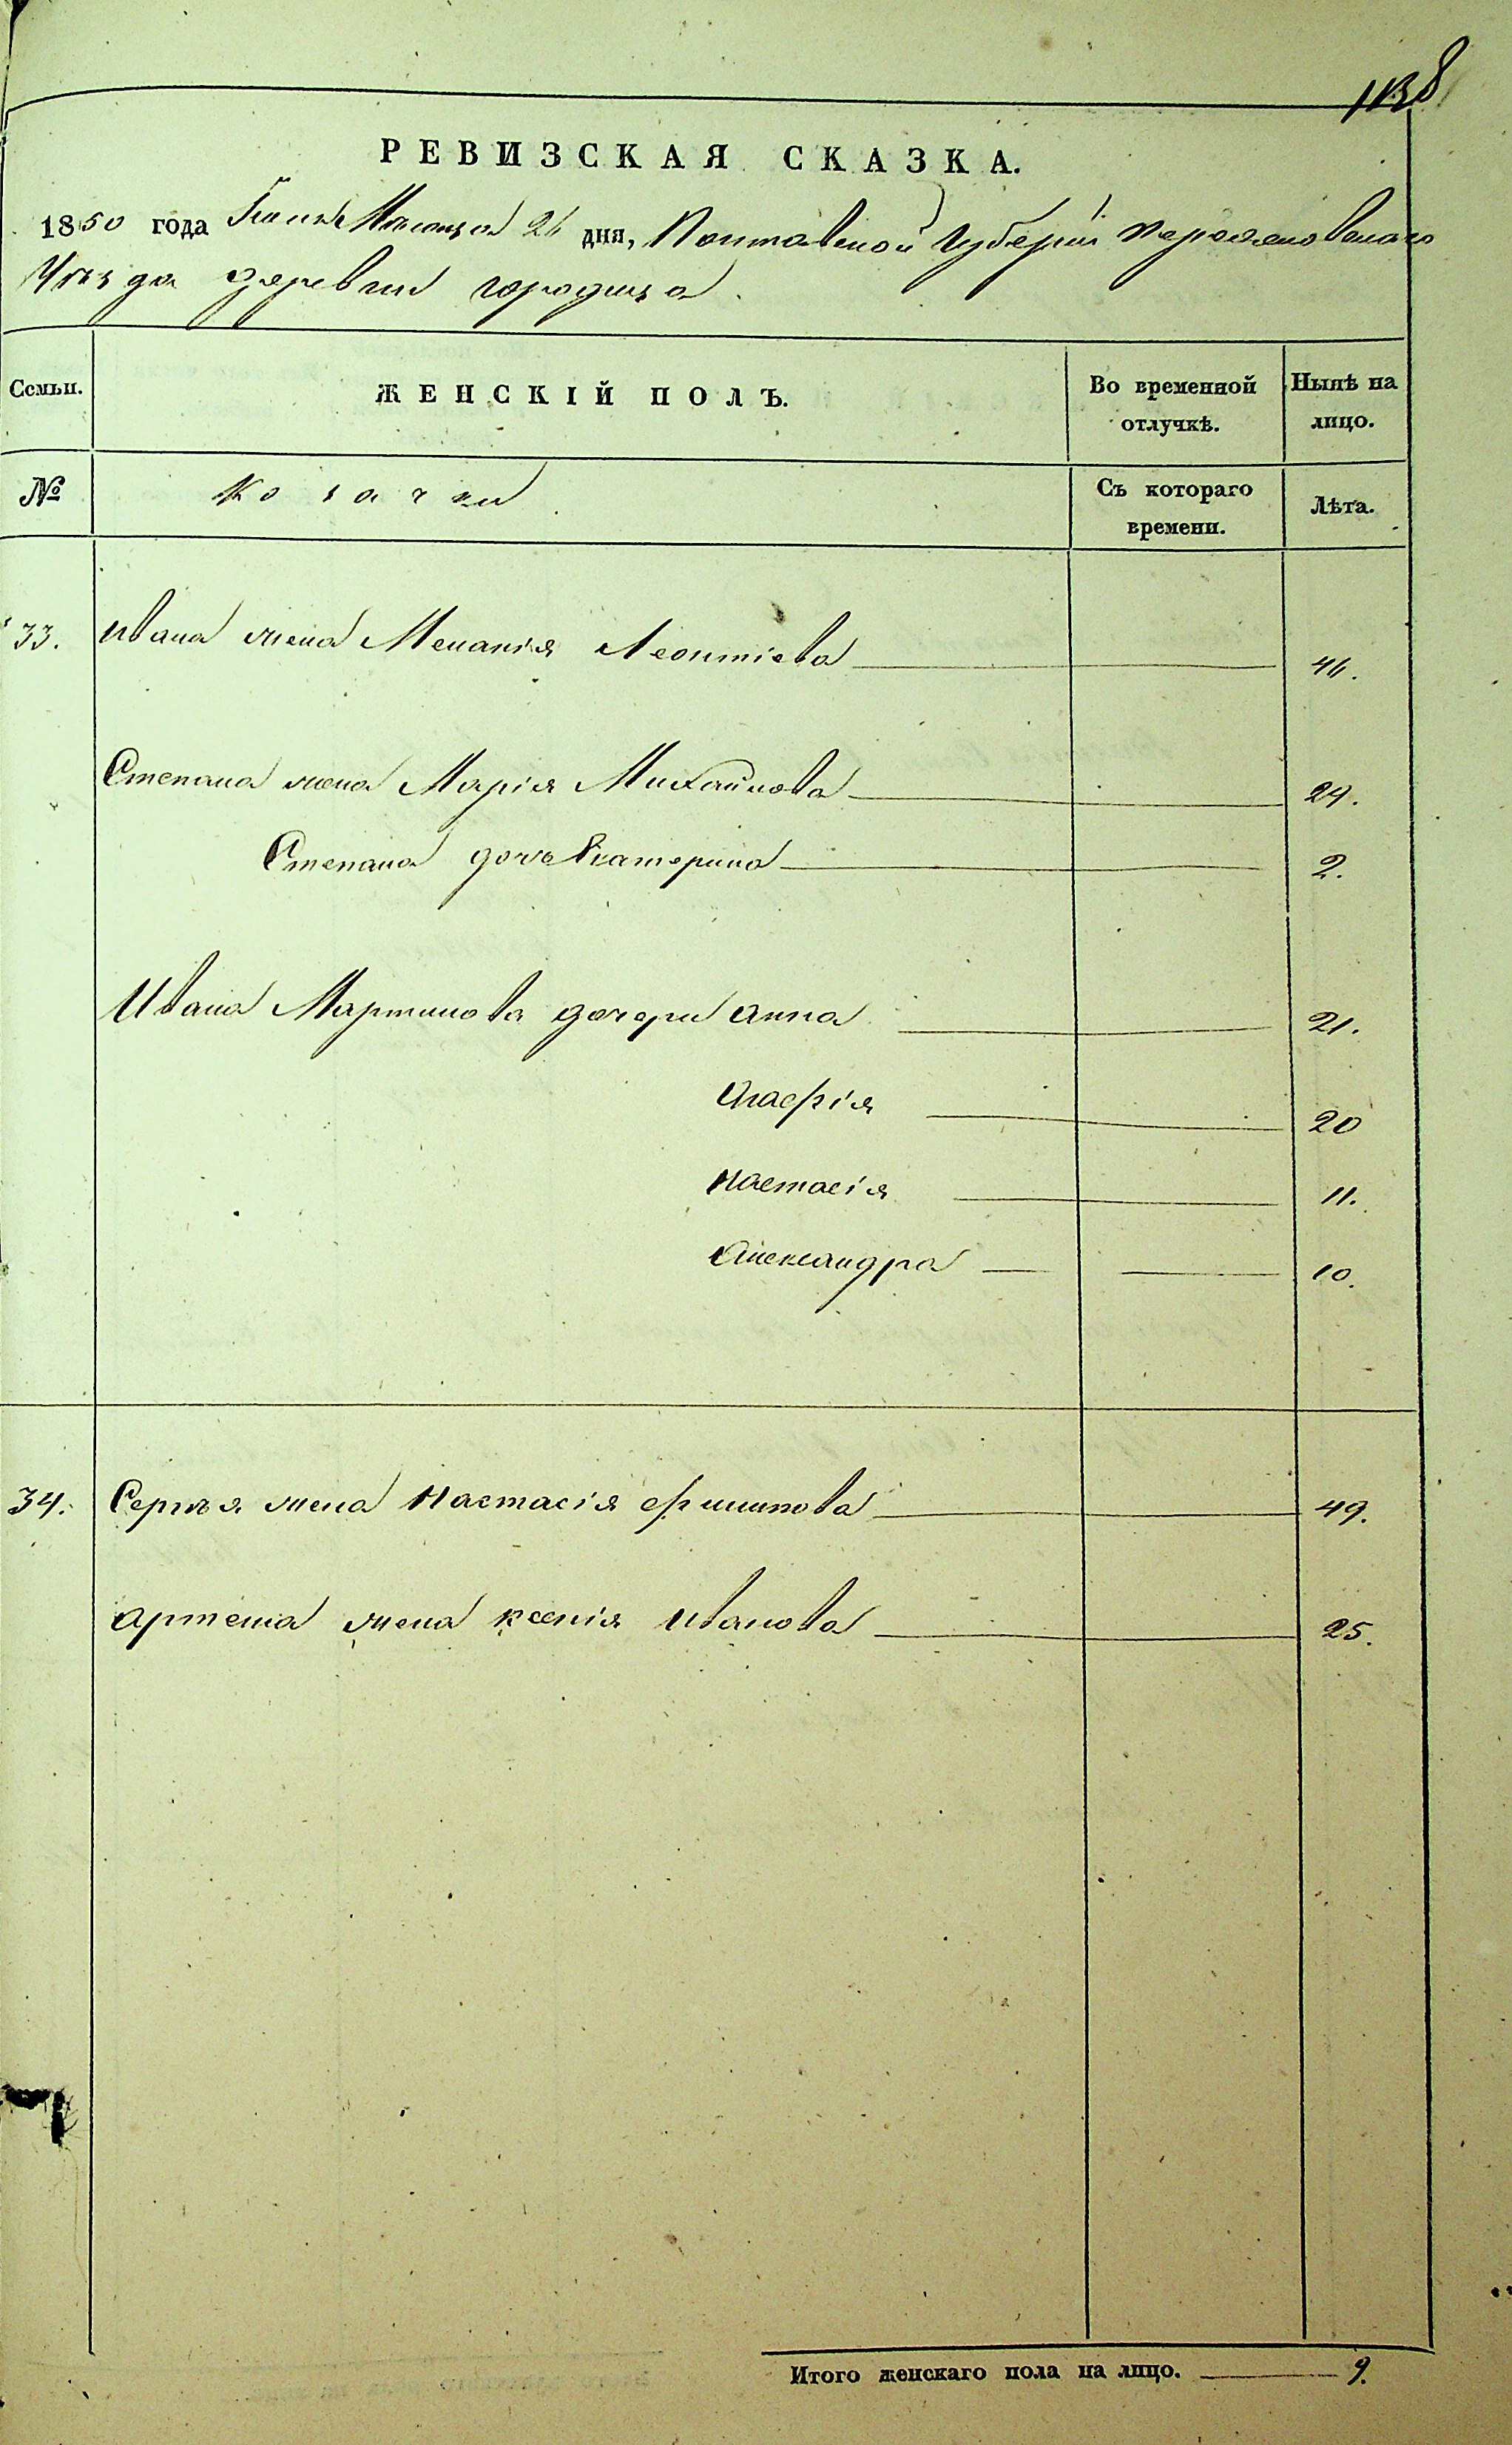 1138
РЕВИЗСКАЯ СКАЗКА.
1850 года Месяца дня, Полтавской Губернiи Переяславскаго
Уезда деревни городища
Семьи. ЖЕНСКIЙ ПОЛЪ. Во временной отлучкѣ. Нынѣ на лицо.
№ козачки Съ котораго времени. Лѣта.
33. Ивана жена Меланiя Леонтiева
Степана жена Марiя Михайлова 29.
Степана дочь Екатерина 2.
Ивана Мартинова дочери Анна 21.
Агафiя 20
Настасiя 11.
Александра 10.
34. Сергѣя жена Настасiя Филипова 49.
Артема жена Ксенiя Иванова 25.
Итого женскаго пола на лицо. 9.